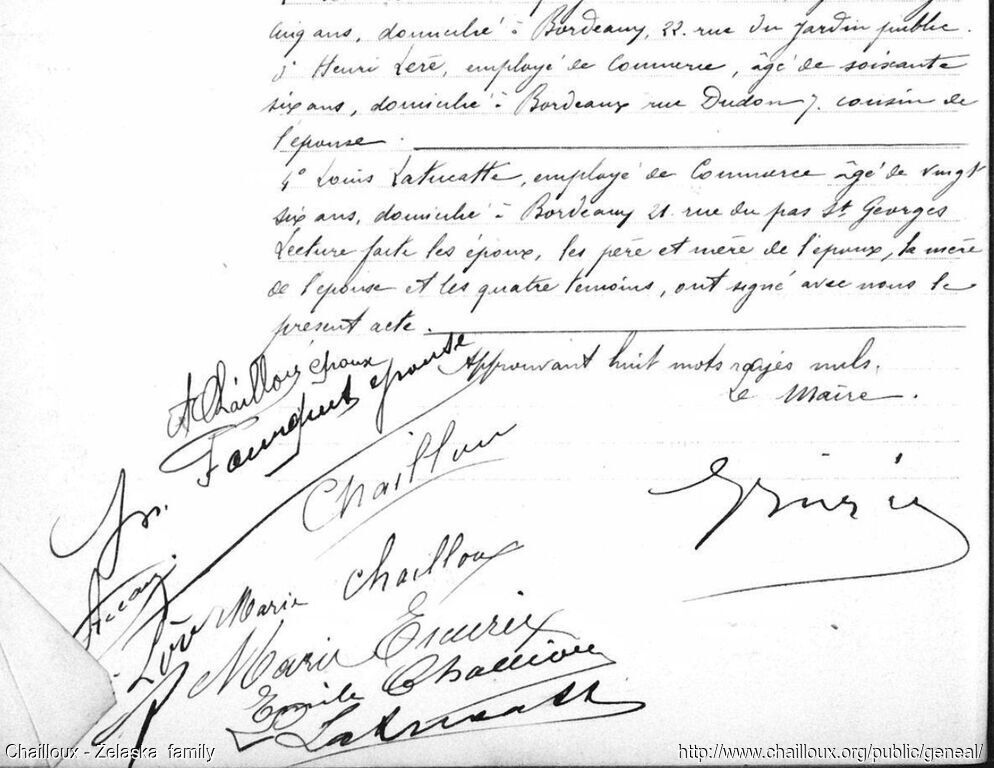 cinq ans, domicilié à Bordeaux, 22. rue du Jardin public.
3° Henri Leré, employé de Commerce, âgé de soixante
six ans, domicilié à Bordeaux rue Dudon 7. cousin de
l'épouse.
4° Louis Latucatte, employé de Commerce âgé de vingt
six ans, domicilié à Bordeaux 21. rue du pas St Georges
Lecture faite les époux, les père et mère de l'époux, la mère
de l'épouse et les quatre témoins, ont signé avec nous le
présent acte.
Approuvant huit mots rayés nuls.
Le Maire.
A Chailloux époux
Fourquet épouse
Chailloux
Marie Chailloux
Léré
Marie Escurix
Emile Chailloux
Latucatte
Chailloux - Zelaska family
http://www.chailloux.org/public/geneal/